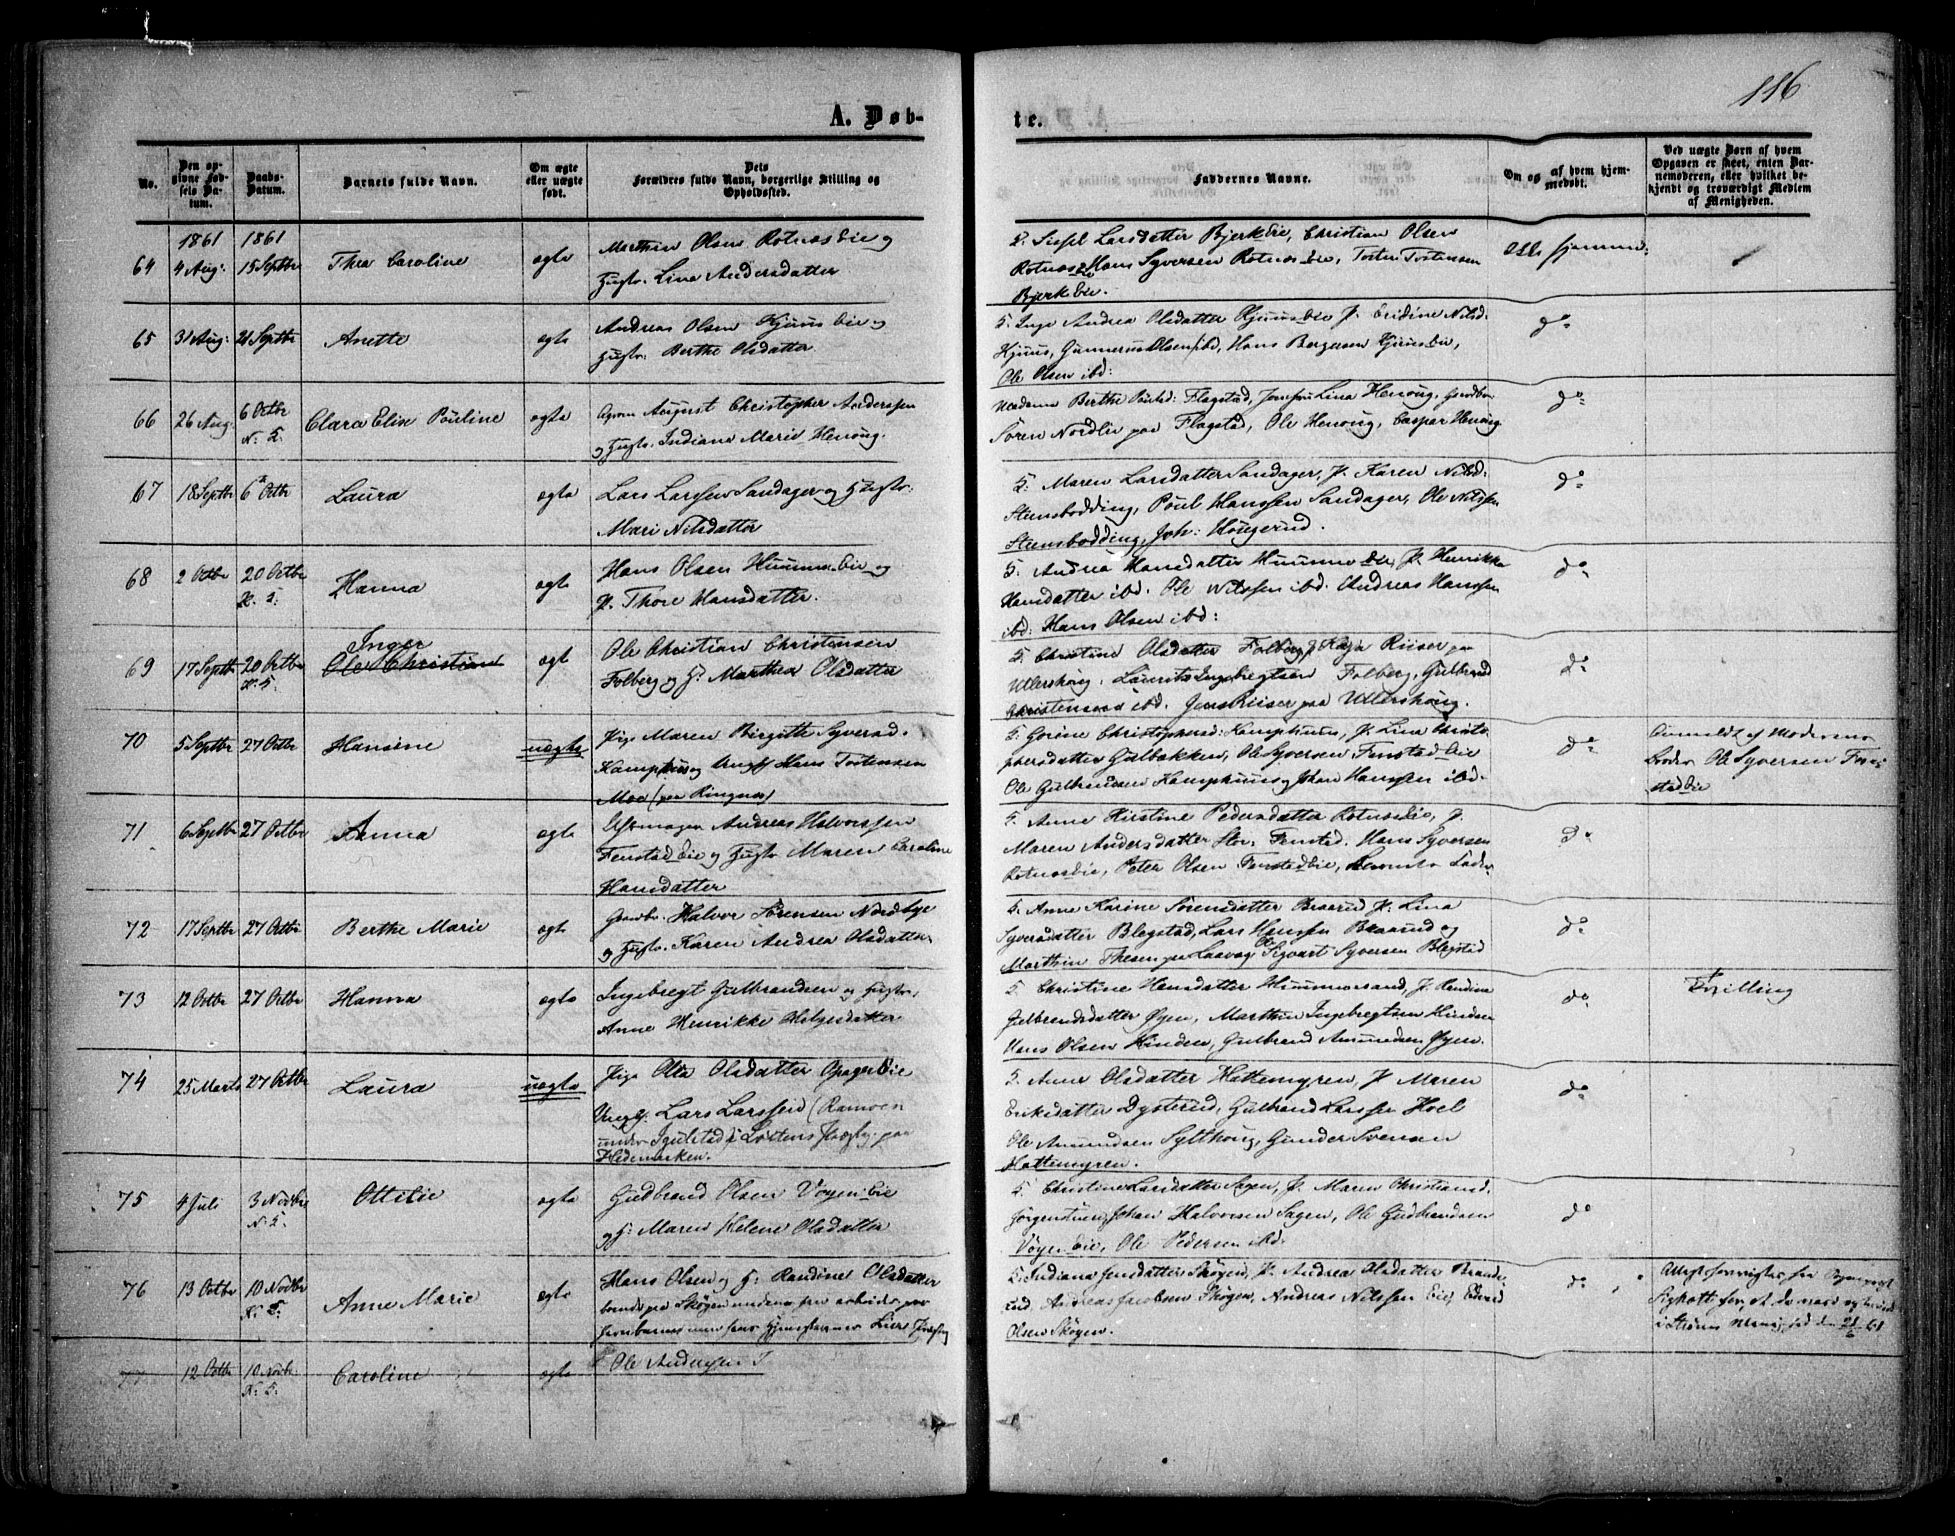 116
A. Døb-
te.
No.
Den op-
givne Fød-
sels Da-
tum.
Daabs-
Datum.
Barnets fulde Navn.
Om ægte
eller uægte
født.
Dets
Forældres fulde Navn, borgerlige Stilling og
Opholdssted.
Faddernes Navne.
Om og af hvem hjem-
medøbt.
Ved uægte Børn af hvem
Opgaven er skeet, enten Bar-
nemoderen, eller hvilket be-
kjendt og troværdigt Medlem
af Menigheden.
1861 1861
64 4 Aug: 15 Septbr Thea Caroline ægte
Marthin Olsen Rotnæs Eie og
Hustr. Lina Andersdatter
Larsdatter Bjerk Eie, Christian Olsen
Rotnæs, Hans Syversen Rotnæs Eie, Torsten Torstensen
Bjerk Eie.
65 31 Aug: 21 Septbr Anette ægte
Andreas Olsen Kjuus Eie og
Hustr: Berthe Olsdatter
Andrea Olsdatter Kjuus Eie
Kjuus, Gunnerus Olsen ibd, Hans Bergersen Kjuus Eie,
Ole Olsen ibd:
do
66 26 Aug. 6 Octbr
N. 5. Clara Elise Pouline ægte
August Christopher Anderssen
og Hustr. Indiana Marie Henoug.
Madame Berthe Flagstad, Lina Henoug,
Sören Nordlie paa Flagstad, Ole Henoug, Caspar Henoug
do
67 18 Septbr 6 Octbr Laura ægte
Lars Larssen Sandager og Hustr.
Mari Nilsdatter
Maren Larsdatter Sandager, J. Karen Nilsd:
Steensbodding, Poul Hanssen Sandager, Ole Nilssen
Steensbodding, Joh: Hougerud.
do
68 2 Octbr 20 Octbr
H. 5. Hanna ægte
Hans Olsen Huumm Eie og
H. Thore Hansdatter.
Andrea Hansdatter Huumm Eie, J. Henrikke
Hansdatter ibd. Ole Nilssen ibd. Andreas Hanssen
ibd: Hans Olsen ibd:
do
69 17 Septbr 20 Octbr
H. 5. Inger
Ole Christian ægt
Ole Christian Christensen
Folberg og H. Marthea Olsdatter
Christine Olsdatter Folberg, Kaja Riiser paa
Ullershoug. Laurits Ingebregtsen Folberg, Gulbrand
Christensen ibd. Jens Riiser paa Ullershoug.
do
70 5 Septbr 27 Octbr Hansine uægte
Pige Maren Birgitte Syversd.
Kamphus og Ungk Hans Torstensen
Moe (paa Ringnes)
Gorine Christophersd: Kamphuus, J. Lina Christo-
phersdatter Gulbakken, Ole Syversen Fenstad Eie
Ole Gulbrandsen Kamphuus og Johan Hanssen ibd.
do
Anmeldt af Moderens
Broder Ole Syversen Fen-
stad Eie
71 6 Septbr 27 Octbr Anna ægte
Andreas Halvorssen
Fenstad Eie og Hustr Maren Caroline
Hansdatter
Anne Kirstine Pedersdatter Rotnæs Eie, J.
Maren Andersdatter Stor Fenstad. Hans Syversen
Rotnæs Eie, Peter Olsen Fenstad Eie,
do
72 17 Septbr 27 Octbr Berthe Marie ægt
Gaardbr. Halvor Sörensen Nordbye
og Hustr. Karen Andrea Olsdatter
Anne Karine Sörensdatter Braarud J: Lina
Syversdatter Blegstad, Lars Hanssen Braarud og
Marthin Thesen paa Laavag, Ole Sigvart Syversen Blegstad
do
73 12 Octbr 27 Octbr Hanna ægte
Ingebregt Gulbrandsen og Hustr.
Anne Henrikke Helgesdatter
Christine Hansdatter Hummersand, J. Randine
Gulbrandsdatter Øyen, Marthin Ingebregtsen Hindsen
Hans Olsen Hinden, Gulbrand Amundsen Øyen.
do
Tvilling
74 25 Marts 27 Octbr Laura uægte
Pige Olea Olsdatter Opager Eie
Ungk. Lars Larssen (Ramoen
under Igulstad i Løitens Præstgj. paa
Hedemarken.
Anne Olsdatter Hattemyren, J. Maren
Eriksdatter Dysterud, Gulbrand Larssen Hoel
Ole Amundsen Sylthoug, Gunder Svensen
Hattemyren.
do
75 4 Juli 3 Novbr
N. 5. Ottilie ægte
Gudbrand Olsen Vøyen Eie
og H: Maren Helene Olsdatter
Christine Larsdatter Sagen, J. Maren Christiansd.
Jørgenstuen, Johan Halvorsen Sagen, Ole Gudbrandsen
Vøyen Eie, Ole Pedersen ibd.
do
76 13 Octbr 10 Novbr
N. 5. Anne Marie ægte
Hans Olsen og H: Randine Olsdatter
boende paa Skøgen
Lier
Indiana Jensdatter Skøgen, J. Andrea Olsdatter Brande-
rud, Andreas Jacobsen Skøgen, Andreas Nilssen Eie, Edvard
Olsen Skøgen.
do
77 12 Octbr 10 Novbr
N. 5. Caroline ægte
Ole Anderssen